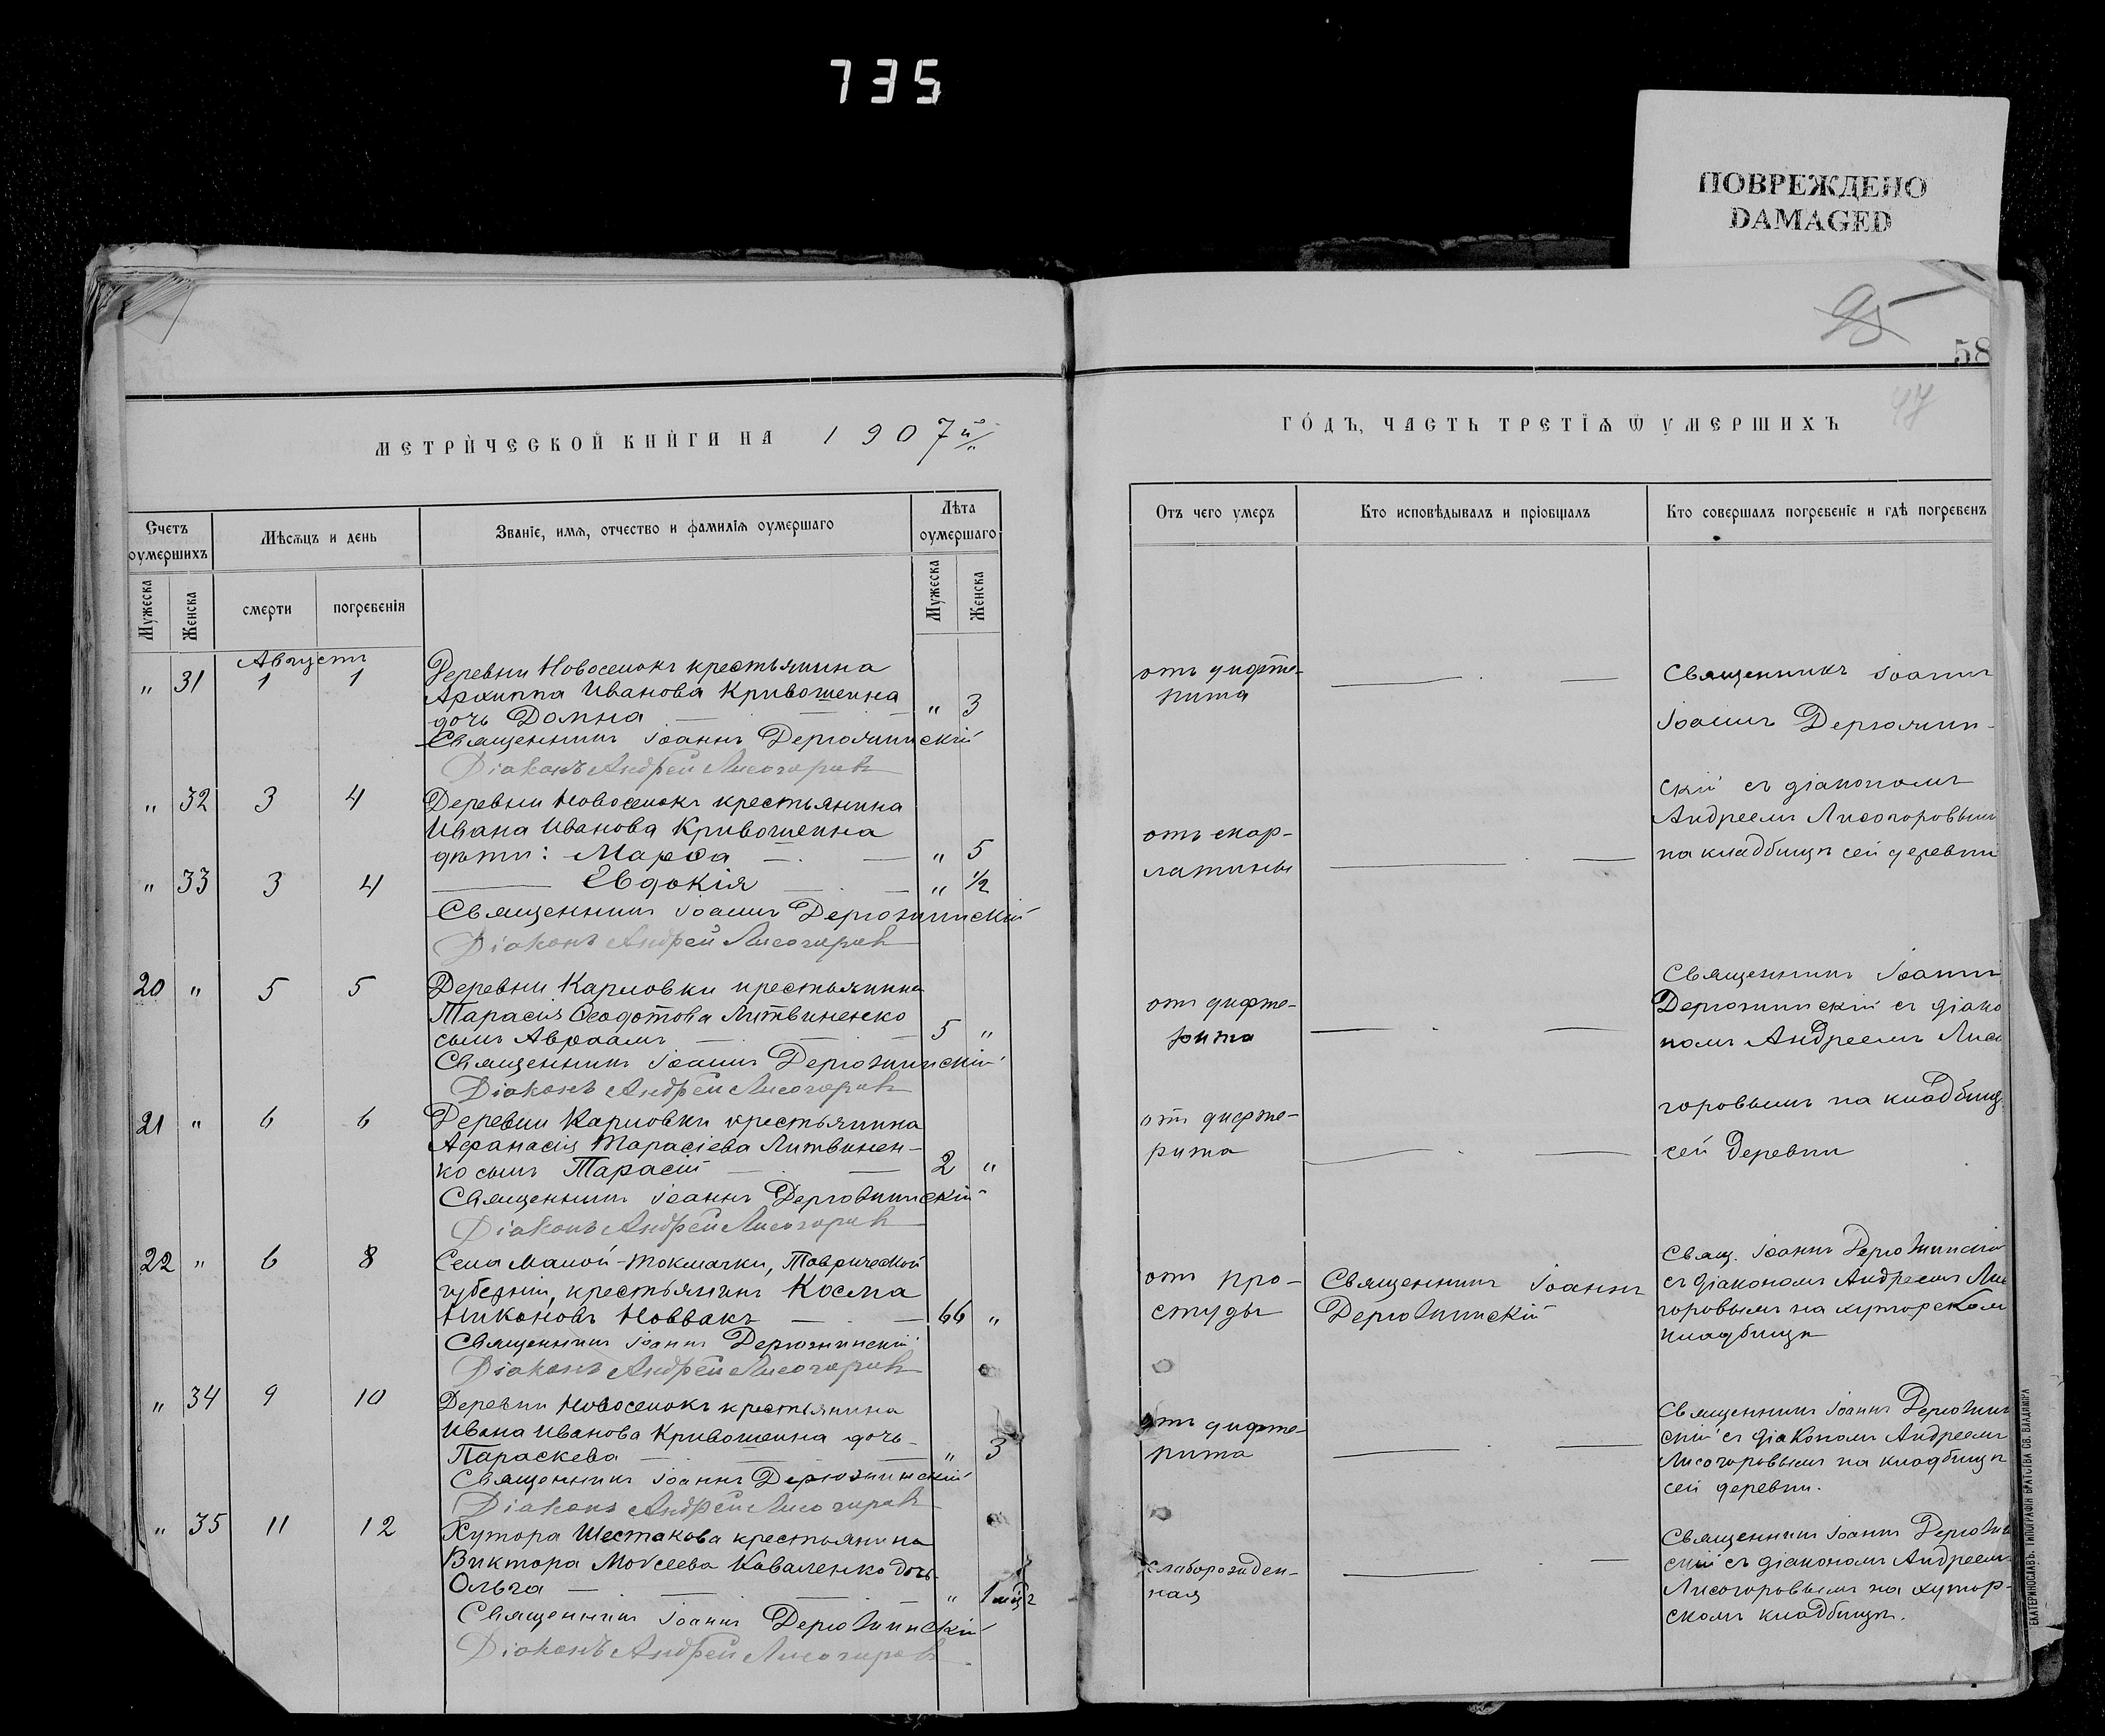 735
ПОВРЕЖДЕНО
DAMAGED
95
58
47
МЕТРИЧЕСКОЙ КНИГИ НА 1907 й
ГОДЪ, ЧАСТЬ ТРЕТІѦ Ѿ УМЕРШИХЪ
Счетъ оумершихъ
Мѣсяцъ и день
Званіе, имѧ, отчество и фамиліѧ оумершаго
Лѣта оумершаго
Мужеска
Женска
смерти
погребеніѧ
Мужеска
Женска
Отъ чего умеръ
Кто исповѣдывалъ и пріобщалъ
Кто совершалъ погребеніе и гдѣ погребенъ
Августъ
" 31 1 1 Деревни Новоселокъ крестьянина
Архиппа Иванова Кривошеина
дочь Домна " 3
Священникъ Іоаннъ Дерюжинскій
Діаконъ Андрей Лисогоровъ
отъ дифте-
рита
Священникъ Іоаннъ
Іоаннъ Дерюжин-
скій съ діакономъ
Андреемъ Лисогоровымъ
на кладбищѣ сей деревни
" 32 3 4 Деревни Новоселокъ крестьянина
Ивана Иванова Кривошеина
дѣти: Марѳа " 5
" 33 3 4 Евдокія " 1/2
Священникъ Іоаннъ Дерюжинскій
Діаконъ Андрей Лисогоровъ
отъ скар-
латины
20 " 5 5 Деревни Карловки крестьянина
Тарасія Ѳеодотова Литвиненко
сынъ Авраамъ 5 "
Священникъ Іоаннъ Дерюжинскій
Діаконъ Андрей Лисогоровъ
отъ дифте-
рита
Священникъ Іоаннъ
Дерюжинскій съ діако
номъ Андреемъ Лисо
горовымъ на кладбищ
сей деревни
21 " 6 6 Деревни Карловки крестьянина
Аѳанасія Тарасіева Литвинен-
ко сынъ Тарасій 2 "
Священникъ Іоаннъ Дерюжинскій
Діаконъ Андрей Лисогоровъ
отъ дифте-
рита
22 " 6 8 Села Малой-Токмачки, Таврической
губерніи, крестьянинъ Косма
Никоновъ Новвакъ 66 "
Священникъ Іоаннъ Дерюжинскій
Діаконъ Андрей Лисогоровъ
отъ про-
студы
Священникъ Іоаннъ
Дерюжинскій
Свящ. Іоаннъ Дерюжинскій
съ діакономъ Андреемъ Лисо
горовымъ на хуторскомъ
кладбищѣ
" 34 9 10 Деревни Новоселокъ крестьянина
Ивана Иванова Кривошеина дочь
Параскева " 3
Священникъ Іоаннъ Дерюжинскій
Діаконъ Андрей Лисогоровъ
отъ дифте-
рита
Священникъ Іоаннъ Дерюжин
скій съ діакономъ Андреемъ
Лисогоровымъ на кладбищѣ
сей деревни.
" 35 11 12 Хутора Шестакова крестьянина
Виктора Моѵсеева Коваленко дочь
Ольга " 1 мѣц
Священникъ Іоаннъ Дерюжинскій
Діаконъ Андрей Лисогоровъ
слаборожден-
ная
Священникъ Іоаннъ Дерюжин
скій съ діакономъ Андреемъ
Лисогоровымъ на хутор-
скомъ кладбищѣ.
ЕКАТЕРИНОСЛАВЪ. ТИПОГРАФІЯ БРАТСТВА СВ. ВЛАДИМІРА